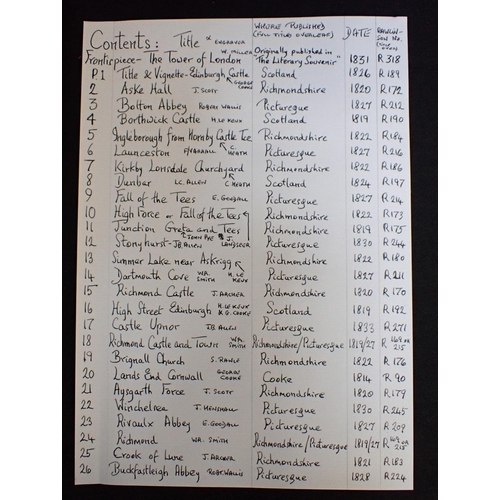 Contents: Title & ENGRAVER WHERE PUBLISHED (FULL TITLES OVERLEAF) DATE RAWLINSON NO.
Frontispiece - The Tower of London W. MILLER Originally published in "The Literary Souvenir" 1831 R 318
P.1 Title & Vignette - Edinburgh Castle GEORGE COOKE Scotland 1826 R 189
2 Aske Hall J. SCOTT Richmondshire 1820 R 172
3 Bolton Abbey ROBERT WALLIS Picturesque 1827 R 212
4 Borthwick Castle H. LE KEUX Scotland 1819 R 190
5 Ingleborough from Hornby Castle Tce Richmondshire 1822 R 184
6 Launceston C. HEATH Picturesque 1827 R 216
7 Kirkby Lonsdale Churchyard Richmondshire 1822 R 186
8 Dunbar I.C. ALLEN C. HEATH Scotland 1824 R 197
9 Fall of the Tees E. GOODALL Picturesque 1827 R 214
10 High Force or Fall of the Tees Richmondshire 1822 R 173
11 Junction Greta and Tees JOHN PYE Richmondshire 1819 R 175
12 Stonyhurst J.B. ALLEN J. LANDSEER Picturesque 1830 R 244
13 Summer Lake near Askrigg Richmondshire 1822 R 180
14 Dartmouth Cove WM. SMITH H. LE KEUX Picturesque 1827 R 211
15 Richmond Castle J. ARCHER Richmondshire 1820 R 170
16 High Street Edinburgh H. LE KEUX & G. COOKE Scotland 1819 R 192
17 Castle Upnor J.B. ALLEN Picturesque 1833 R 271
18 Richmond Castle and Town WM. SMITH Richmondshire/Picturesque 1819/27 R 169 OR 215
19 Brignall Church S. RAWLE Richmondshire 1822 R 176
20 Lands End Cornwall GEORGE COOKE Cooke 1814 R 90
21 Aysgarth Force J. SCOTT Richmondshire 1820 R 179
22 Winchelsea J. HENSHALL Picturesque 1830 R 245
23 Rivaulx Abbey E. GOODALL Picturesque 1827 R 209
24 Richmond WM. SMITH Richmondshire/Picturesque 1819/27 R 169 OR 215
25 Crook of Lune J. ARCHER Richmondshire 1821 R 183
26 Buckfastleigh Abbey ROBT. WALLIS Picturesque 1828 R 224